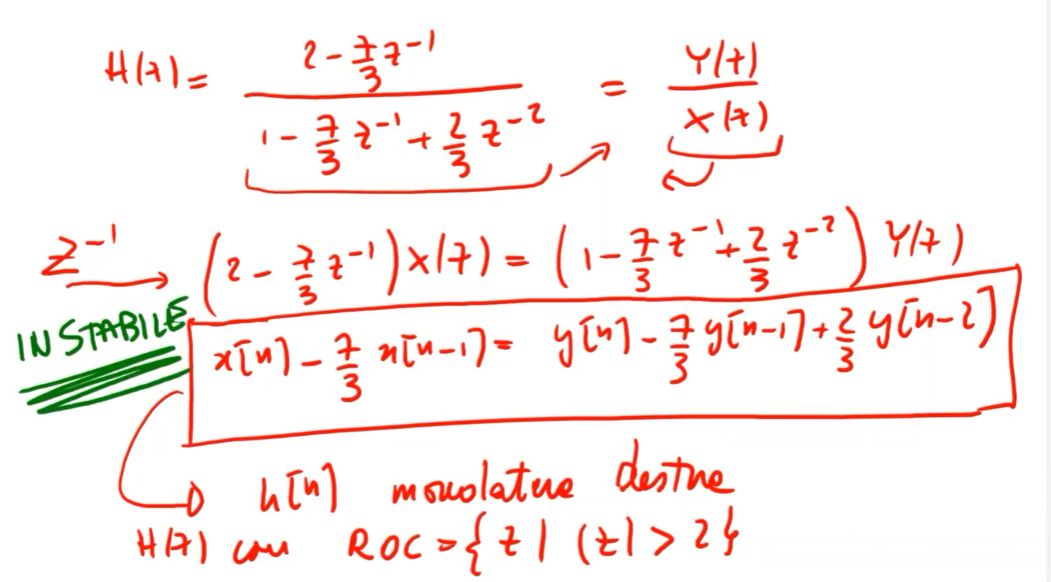 H(z) = (2 - 7/3 z^-1) / (1 - 7/3 z^-1 + 2/3 z^-2) = Y(z) / X(z)
Z^-1 → (2 - 7/3 z^-1) X(z) = (1 - 7/3 z^-1 + 2/3 z^-2) Y(z)
INSTABILE
x[n] - 7/3 x[n-1] = y[n] - 7/3 y[n-1] + 2/3 y[n-2]
h[n] monolatera destra
H(z) con ROC = {z | |z| > 2}